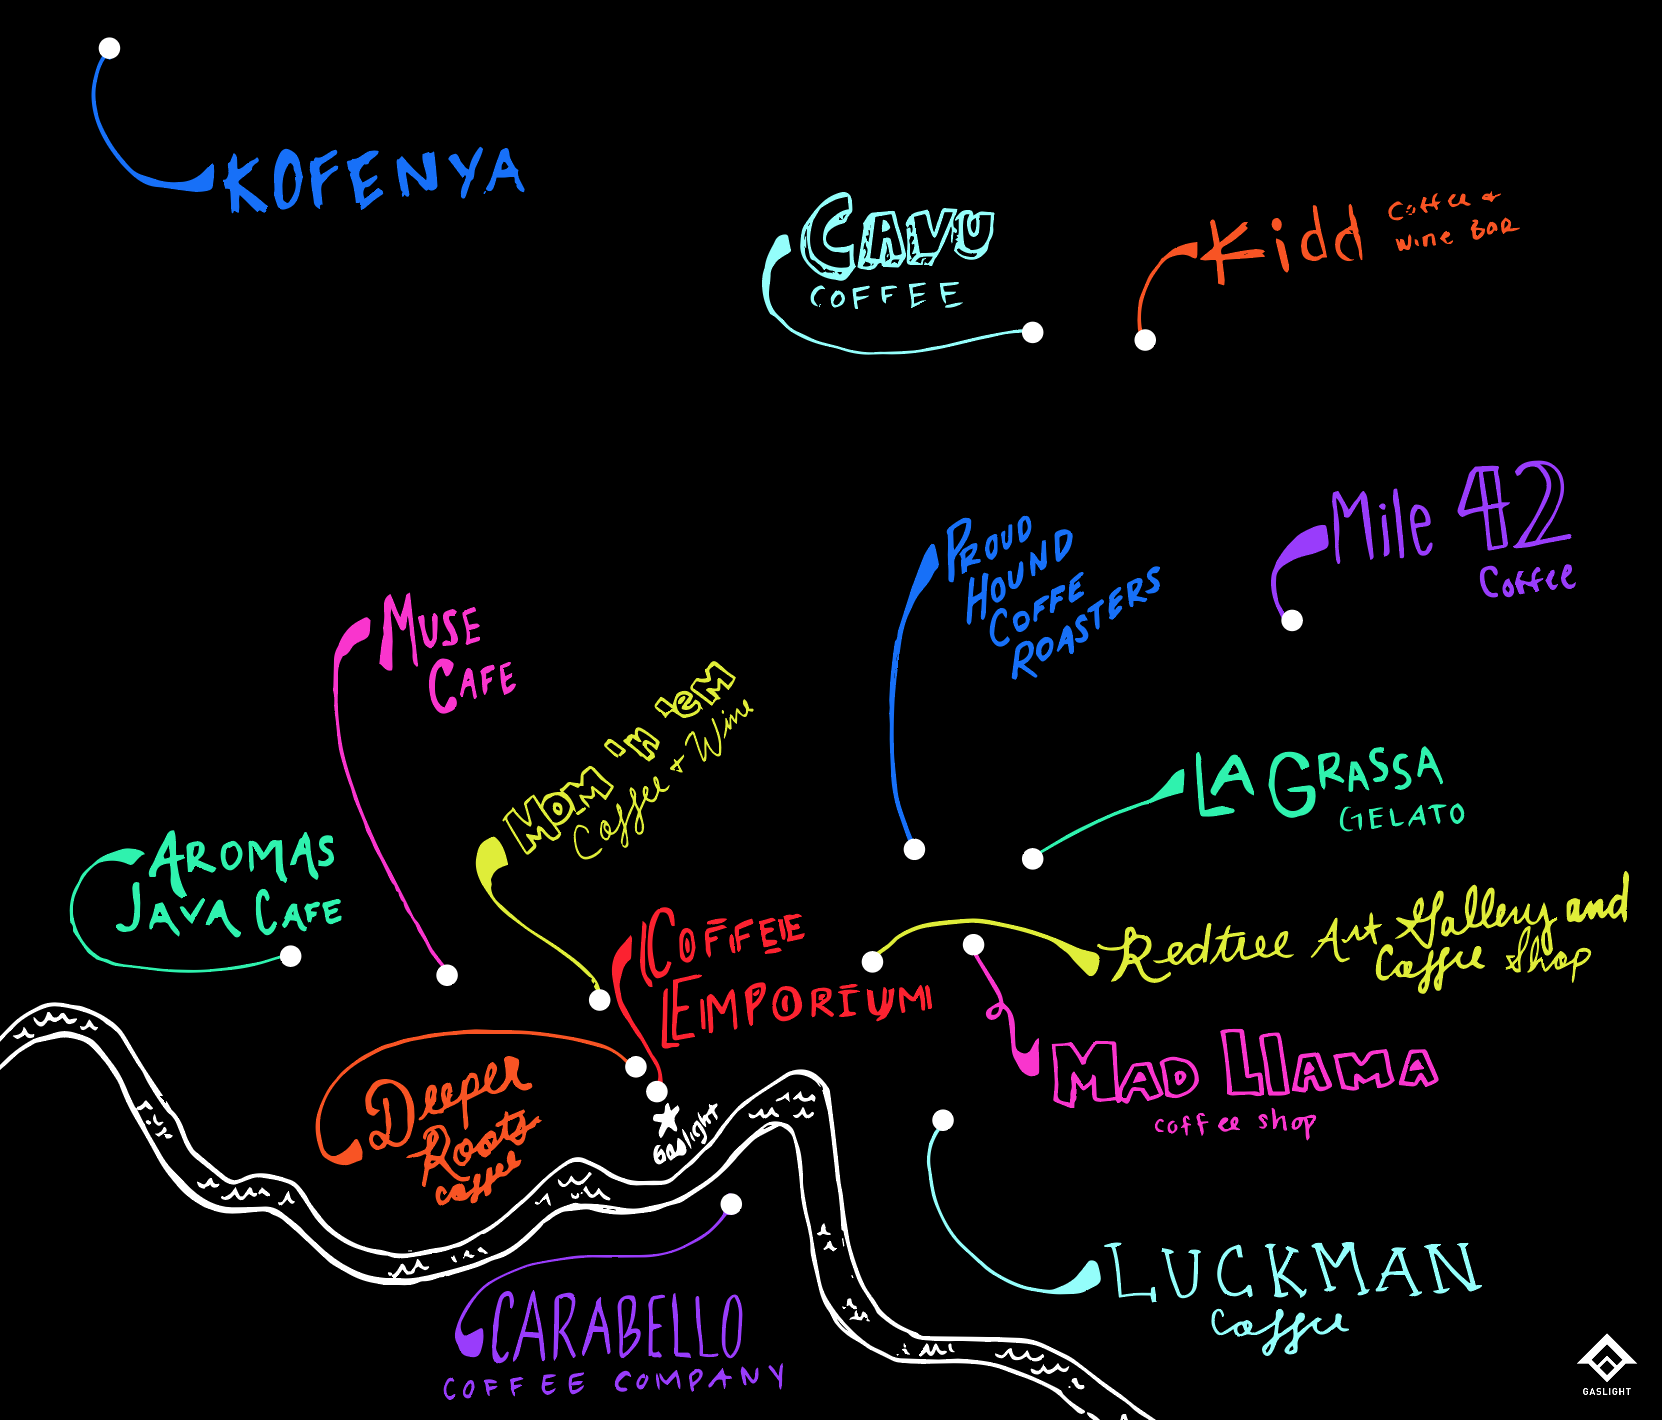 KOFENYA
CAVU
COFFEE
Kidd
Coffee +
Wine BAR
Mile 42
Coffee
PROUD
HOUND
COFFE
ROASTERS
MUSE
CAFE
MOM 'n 'eM
Coffee + Wine
LA GRASSA
GELATO
AROMAS
JAVA CAFE
COFFEE
EMPORIUM
Redtree Art Gallery and
Coffee Shop
MAD LlAMA
coffee shop
Deeper
Roots
coffee
Gaslight
LUCKMAN
Coffee
CARABELLO
COFFEE COMPANY
GASLIGHT